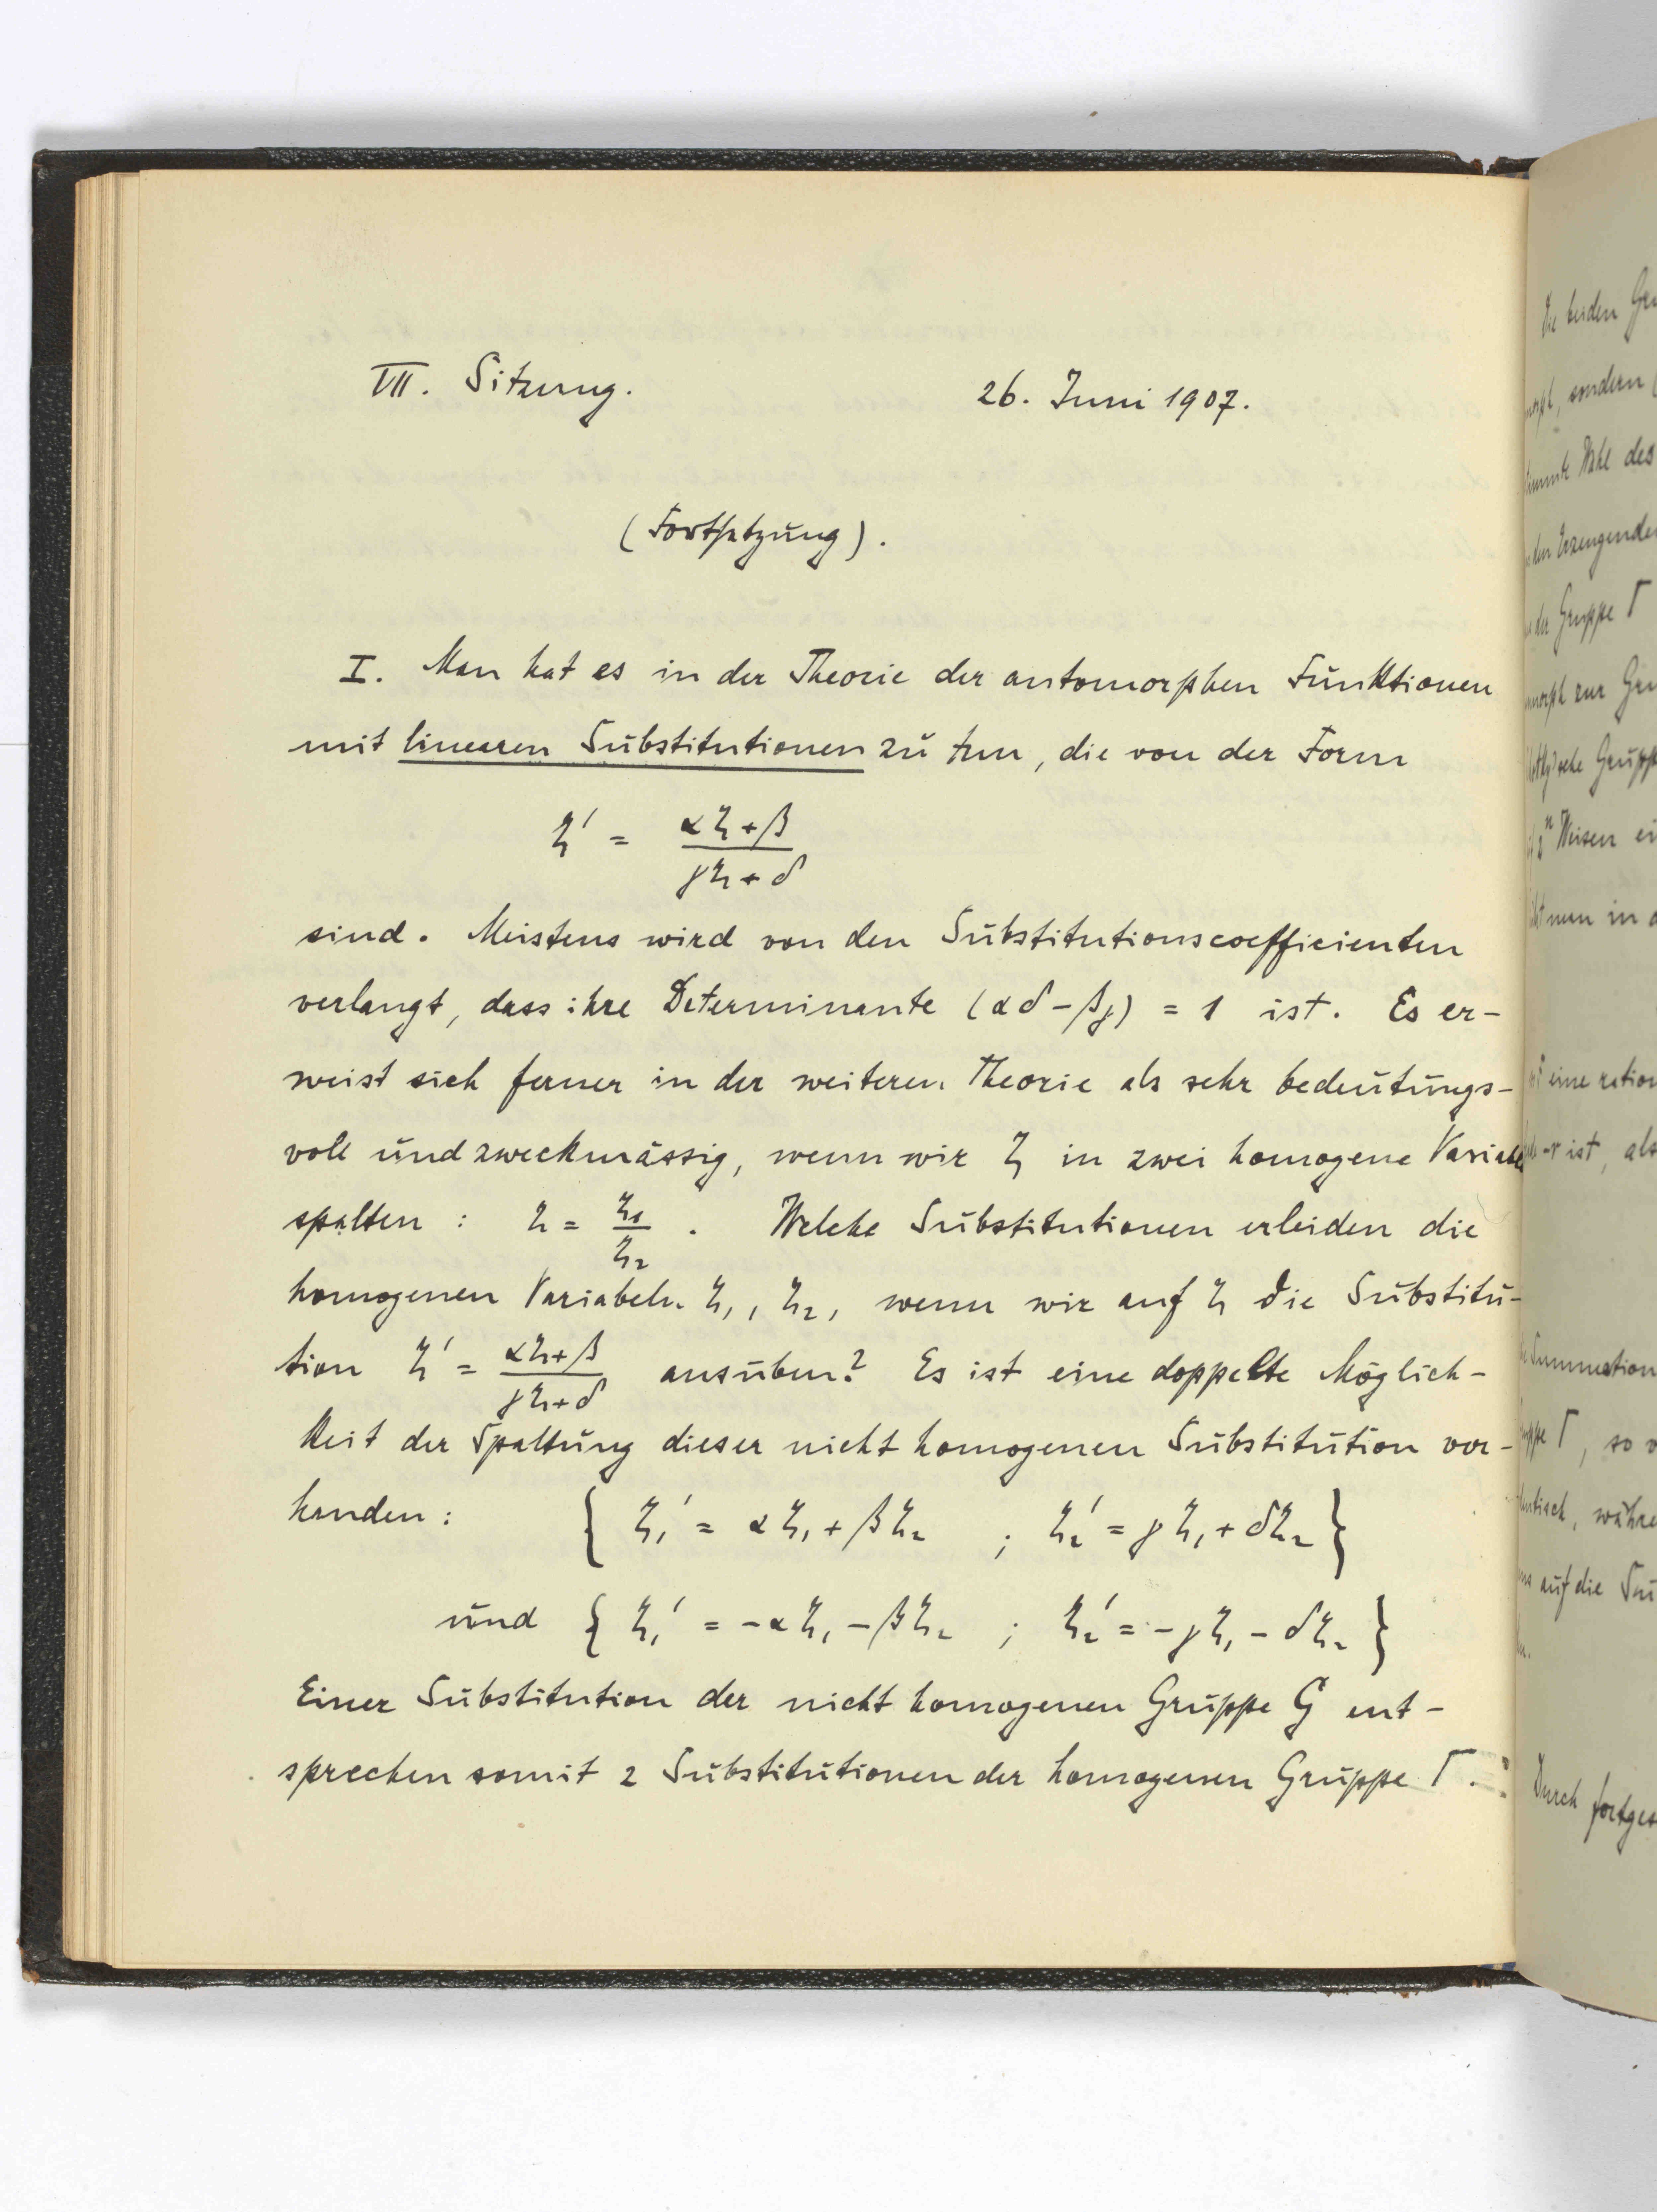 VII. Sitzung. 26. Juni 1907.
(Fortsetzung).
I. Man hat es in der Theorie der automorphen Funktionen
mit linearen Substitutionen zu tun, die von der Form
ζ' = (αζ+β)/(γζ+δ)
sind. Meistens wird von den Substitutionscoefficienten
verlangt, dass ihre Determinante (αδ-βγ) = 1 ist. Es er-
weist sich ferner in der weiteren Theorie als sehr bedeutungs-
voll und zweckmässig, wenn wir ζ in zwei homogene Variabeln
spalten : ζ = ζ₁/ζ₂ . Welche Substitutionen erleiden die
homogenen Variabeln ζ₁, ζ₂, wenn wir auf ζ die Substitu-
tion ζ' = (αζ+β)/(γζ+δ) ausüben? Es ist eine doppelte Möglich-
keit der Spaltung dieser nicht homogenen Substitution vor-
handen : { ζ₁' = αζ₁ + βζ₂ ; ζ₂' = γζ₁ + δζ₂ }
und { ζ₁' = -αζ₁ - βζ₂ ; ζ₂' = -γζ₁ - δζ₂ }
Einer Substitution der nicht homogenen Gruppe G ent-
sprechen somit 2 Substitutionen der homogenen Gruppe Γ.
Die beiden
sondern
Wahl des
den Erzeugenden
der Gruppe Γ
zur
Weisen
man in
eine
ist, als
Summation
Γ, so
auf die
Durch